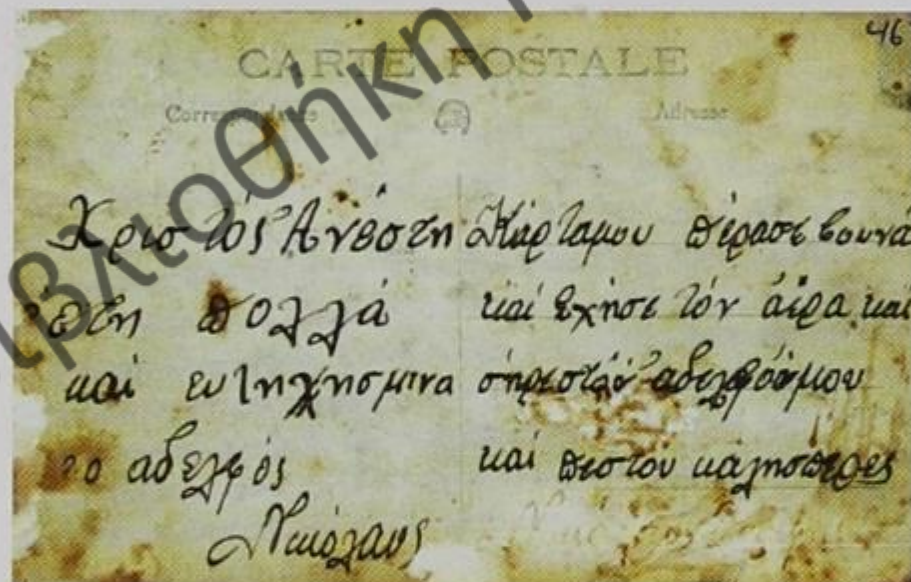 46
CARTE POSTALE
Correspondance Adresse
Χριστός Ανέστη
έτη πολλά
και ευτηχησμινα
ο αδελφός
Νικόλαος
Κάρταμου πέρασε βουνά
και σχησε τόν αέρα και
σηρεστόν αδελφόνμου
και πεστου καλησπερες
Βιβλιοθήκη